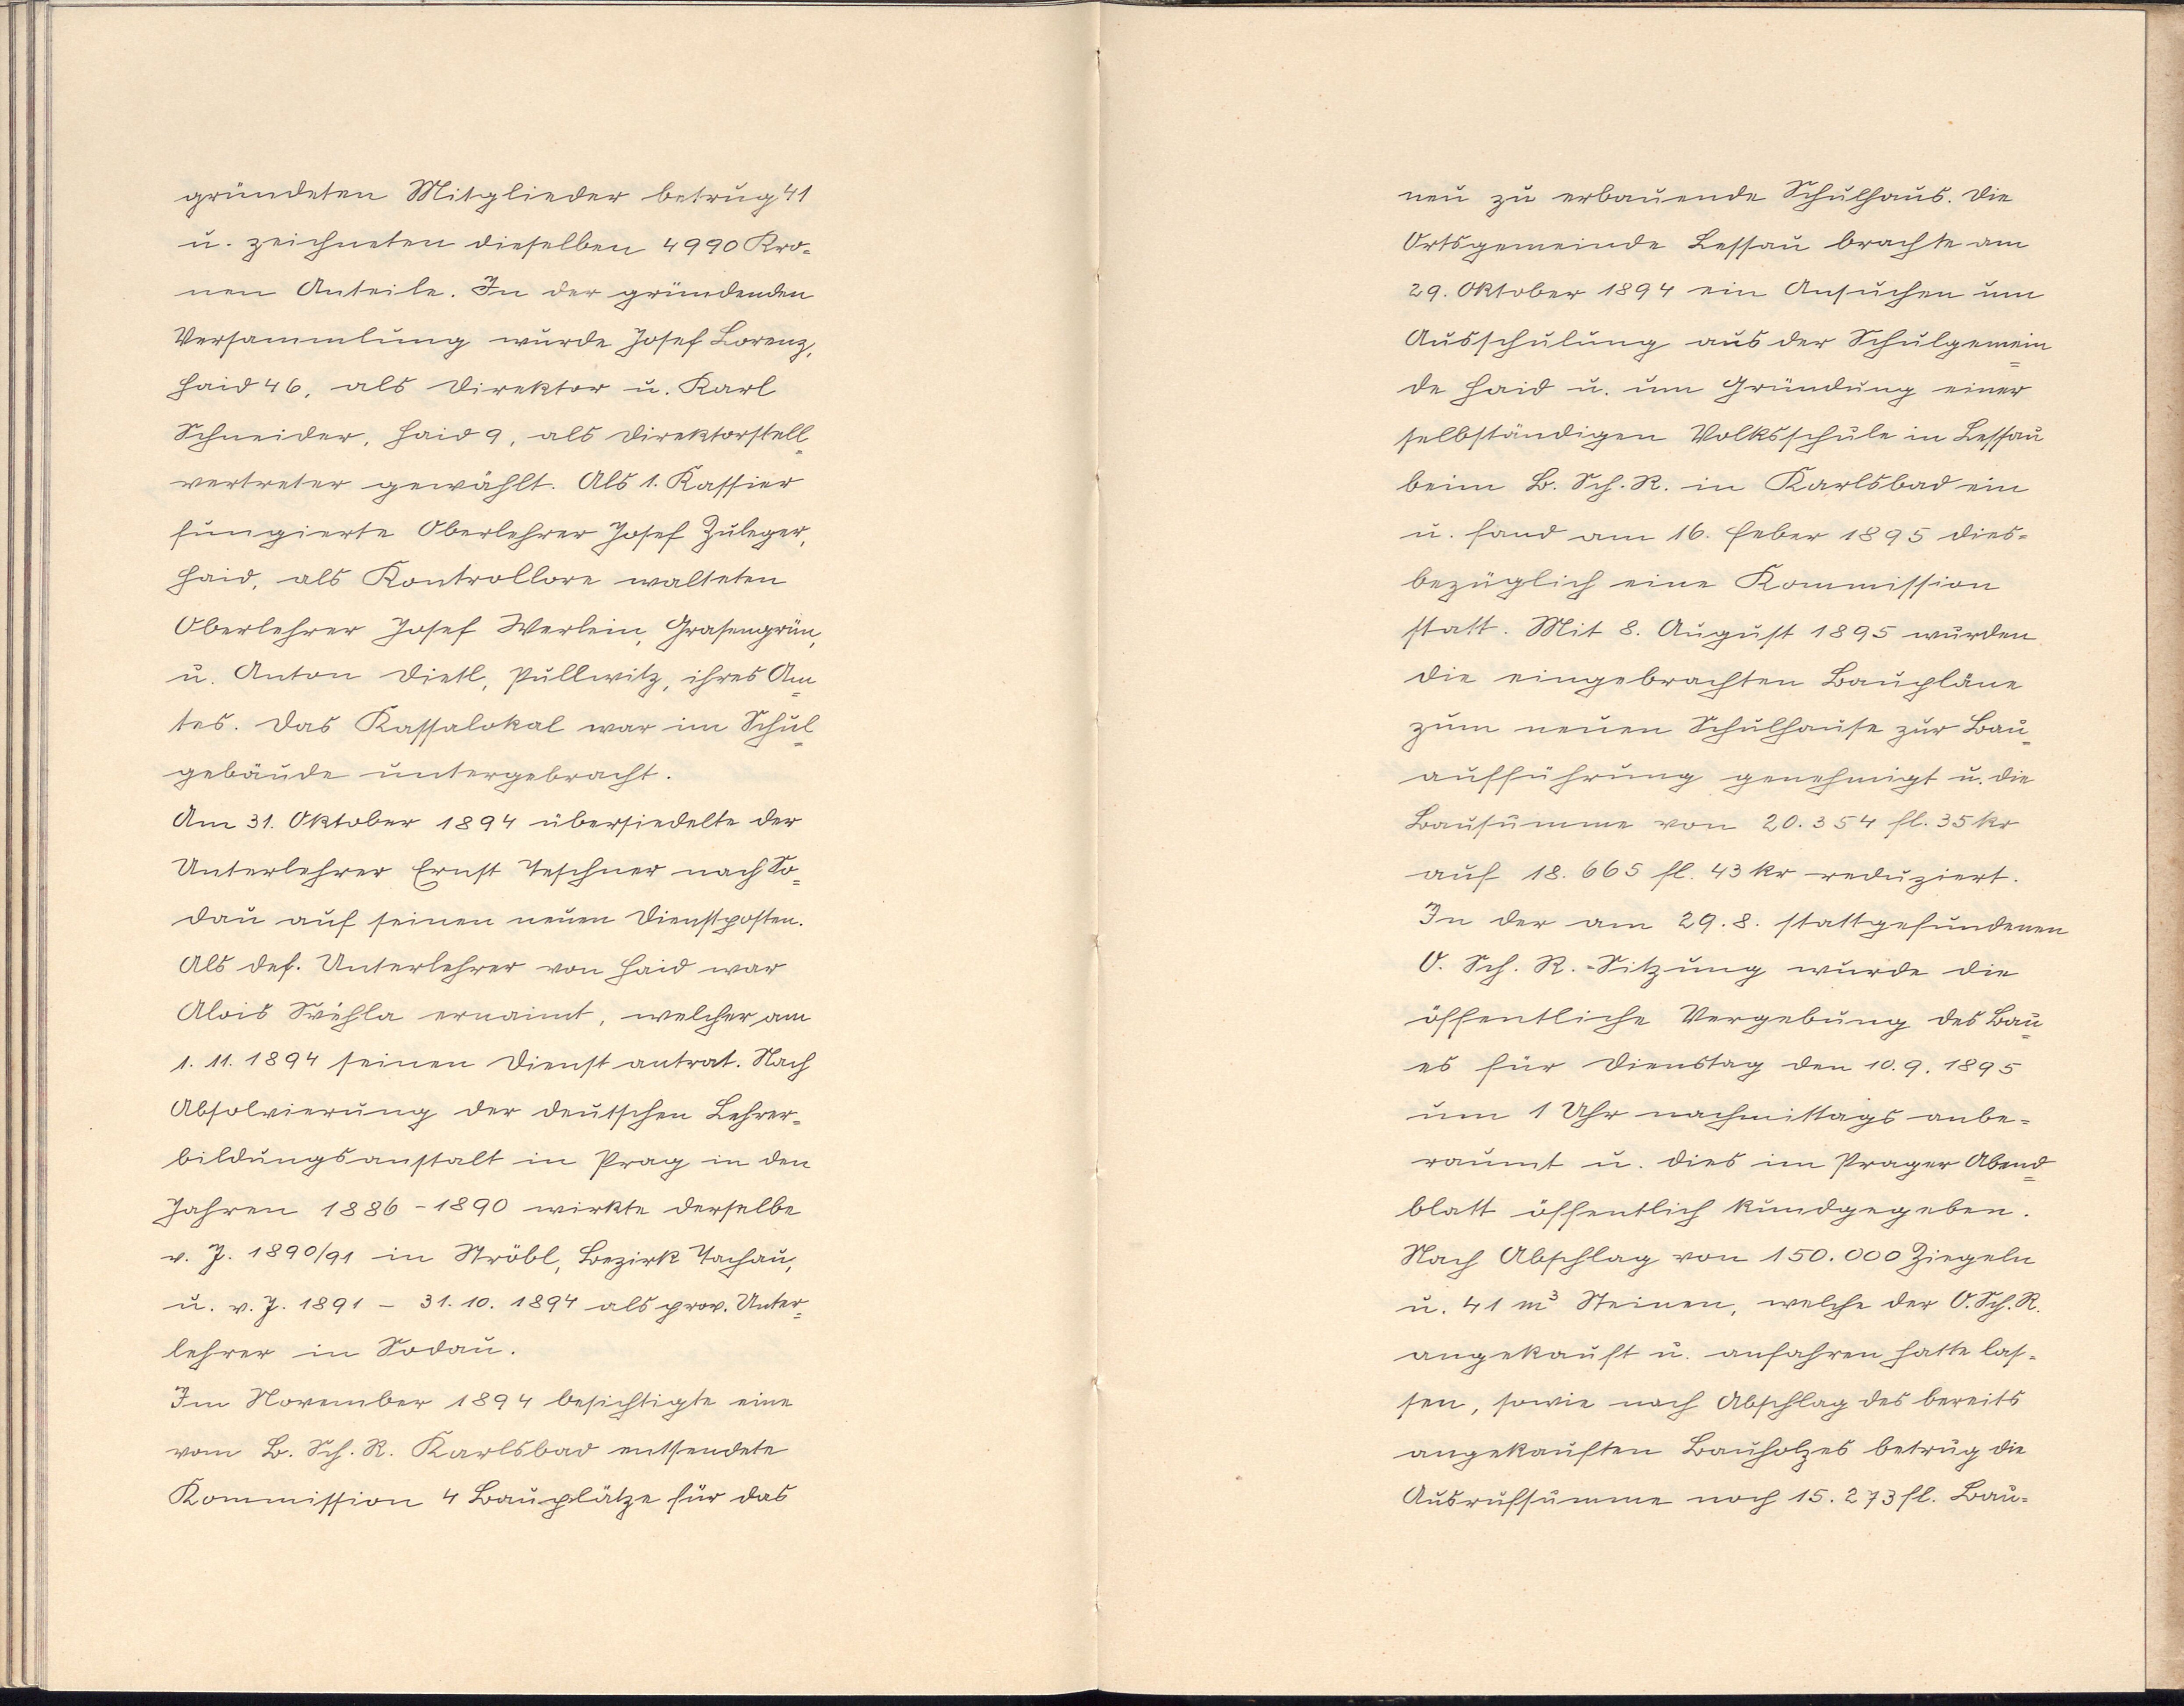 gründeten Mitglieder betrug 41
u. zeichneten dieselben 4990 Kro-
nen Anteile. In der gründenden
Versammlung wurde Josef Lorenz,
Haid 46, als Direktor u. Karl
Schneider, Haid 9, als Direktorstell-
vertreter gewählt. Als 1. Kassier
fungierte Oberlehrer Josef Zuleger,
Haid, als Kontrollore walteten
Oberlehrer Josef Werlein, Grasengrün,
u. Anton Dietl, Pullwitz, ihres Am-
tes. Das Kassalokal war im Schul-
gebäude untergebracht.
Am 31. Oktober 1894 übersiedelte der
Unterlehrer Ernst Teschner nach So-
dau auf seinen neuen Dienstposten.
Als def. Unterlehrer von Haid war
Alois Svéhla ernannt, welcher am
1. 11. 1894 seinen Dienst antrat. Nach
Absolvierung der deutschen Lehrer-
bildungsanstalt in Prag in den
Jahren 1886-1890 wirkte derselbe
v. J. 1890/91 in Ströbl, Bezirk Tachau,
u. v. J. 1891 - 31. 10. 1894 als prov. Unter-
lehrer in Sodau.
Im November 1894 besichtigte eine
vom B. Sch. R. Karlsbad entsendete
Kommission 4 Bauplätze für das
neu zu erbauende Schulhaus. Die
Ortsgemeinde Lessau brachte am
29. Oktober 1894 ein Ansuchen um
Ausschulung aus der Schulgemein-
de Haid u. um Gründung einer
selbständigen Volksschule in Lessau
beim B. Sch. R. in Karlsbad ein
u. fand am 16. Feber 1895 dies-
bezüglich eine Kommission
statt. Mit 8. August 1895 wurden
die eingebrachten Baupläne
zum neuen Schulhause zur Bau-
aufführung genehmigt u. die
Bausumme von 20.354 fl. 35 kr
auf 18.665 fl. 43 kr reduziert.
In der am 29. 8. stattgefundenen
O. Sch. R.-Sitzung wurde die
öffentliche Vergebung des Bau-
es für Dienstag den 10. 9. 1895
um 1 Uhr nachmittags anbe-
raumt u. dies im Prager Abend-
blatt öffentlich kundgegeben.
Nach Abschlag von 150.000 Ziegeln
u. 41 m³ Steinen, welche der O. Sch. R.
angekauft u. anfahren hatte las-
sen, sowie nach Abschlag des bereits
angekauften Bauholzes betrug die
Ausrufsumme noch 15.273 fl. Bau-